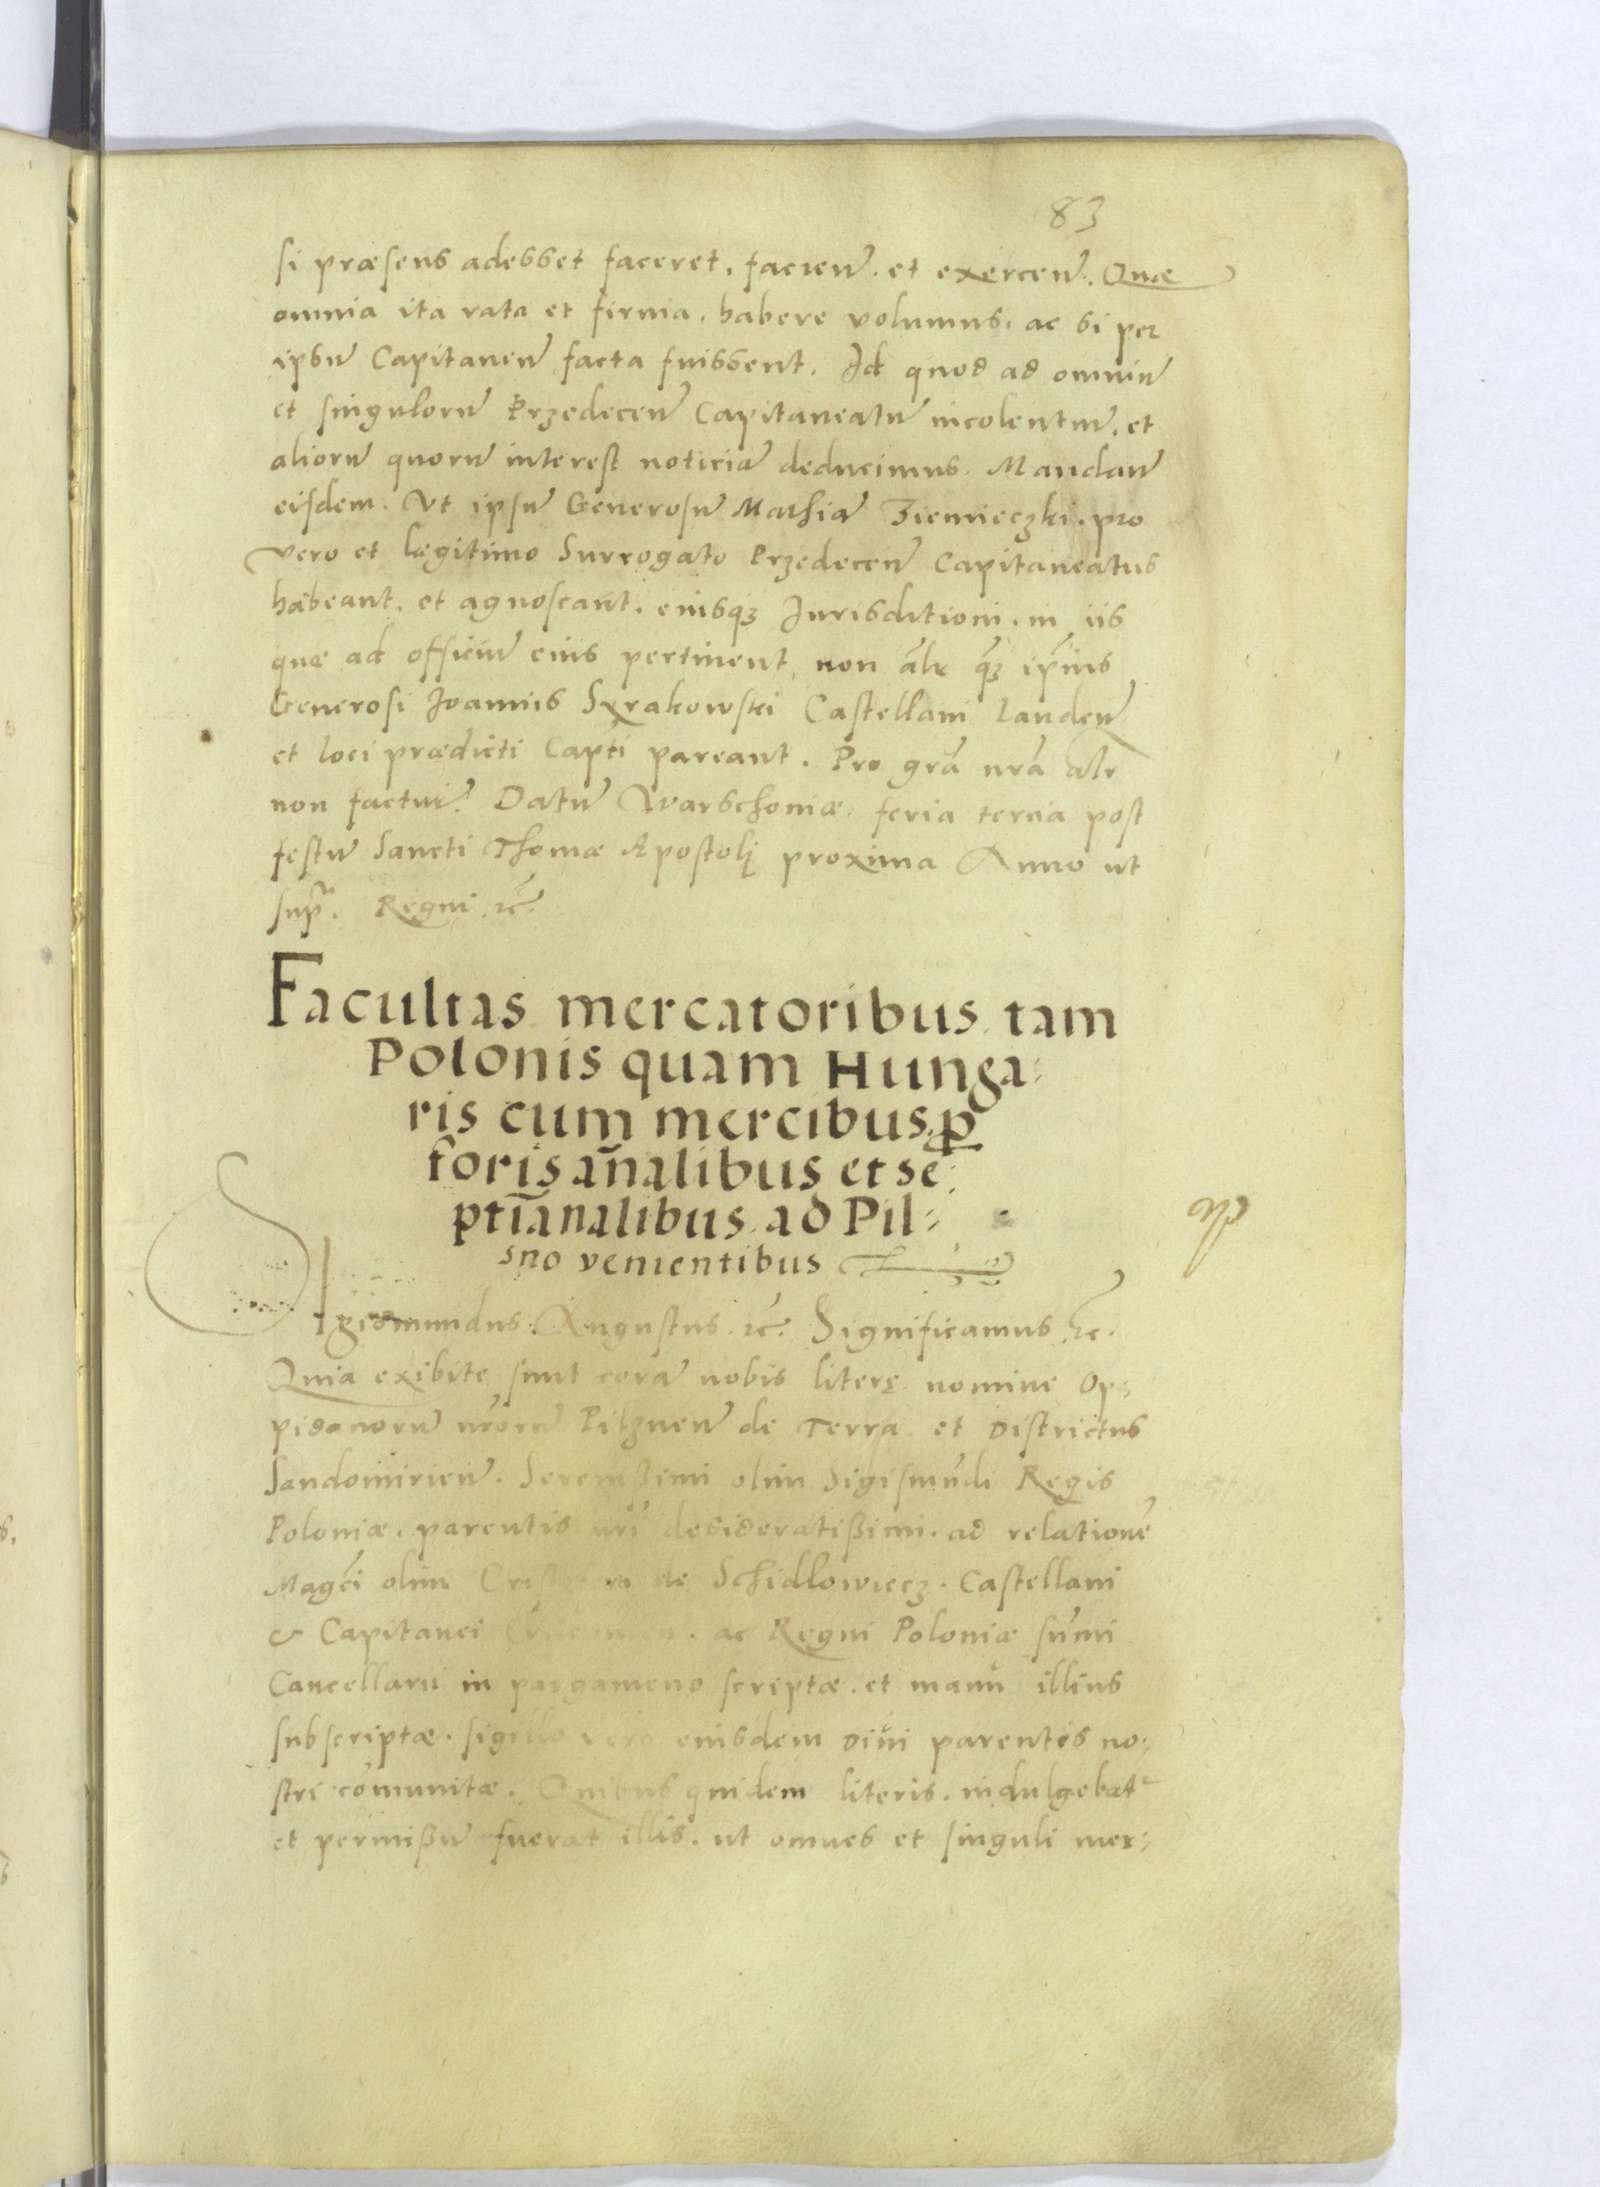 83
si præsens adesset faceret, facien. et exercen. Quæ
omnia ita rata et firma, habere volumus, ac si per
ipsū Capitaneū facta fuissent. Id quod ad omniū
et singulorū Przedecen̄ Capitaneatū incolentiū, et
aliorū quorū interest noticiā deducimus. Mandan̄
eisdem. Vt ipsū Generosū Mathiā Ziemieczki. pro
vero et legitimo Surrogato Przedecen̄ Capitaneatus
habeant, et agnoscant, eiusqȝ Jurisditioni, in iis
quæ ad officiū eius pertinent, non alr̄ qȝ ip̄ius
Generosi Joannis Sxrakowski Castellani Landen̄
et loci prædicti Capti pareant. Pro grā nr̄a alr̄
non factur̄. Datū Warschoniæ feria tercia post
festū Sancti Thomæ Apostolj proxima Anno ut
supr̄. Regni ꝛc̄.
Facultas mercatoribus tam
Polonis quam Hunga:
ris cum mercibus, ꝓ
foris an̄alibus et se:
ptīanalibus ad Pil:
sno venientibus
SIgismundus Augustus ꝛc̄. Significamus ꝛc.
Quia exibite sunt corā nobis literę nomine Op:
pidanorū nr̄orū Pilznen̄ de Terra et Districtus
Sandomirien̄. Sereniſsimi olim Sigismūdi Regis
Poloniæ, parentis nr̄i desideratißimi, ad relationē
Magc̄i olim de Schidlowiecz. Castellani
& Capitanei ac Regni Poloniæ sūmi
Cancellarii in pargameno scriptæ, et manu illius
subscriptæ, sigillo vero eiusdem Divi parentis no:
stri cōmunitæ. Quibus quidem literis, indulgebatr
et permißū fuerat illis, ut omnes et singuli mer: